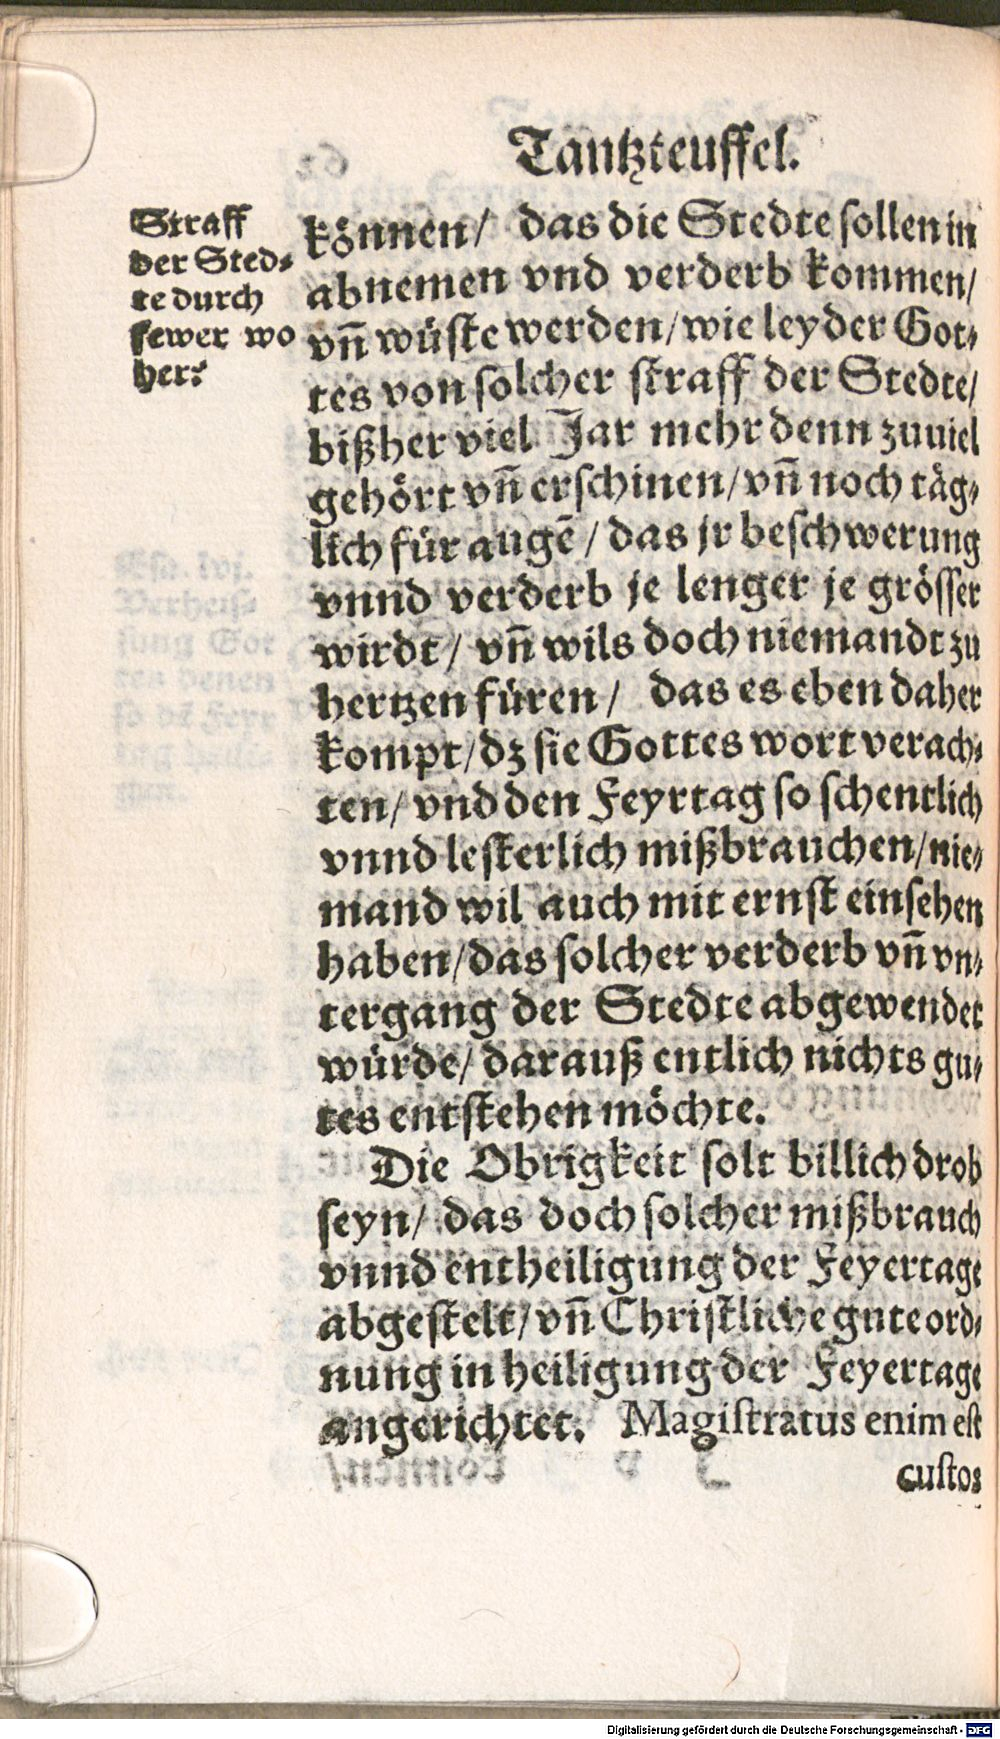 Tantzteuffel.
Straff
der Sted⸗
te durch
fewer wo
her?
können/ das die Stedte sollen in
abnemen vnd verderb kommen/
vñ wüste werden/wie leyder Got⸗
tes von solcher straff der Stedte/
bißher viel Jar mehr denn zuuiel
gehört vñ erschinen/vñ noch täg⸗
lich für augē/ das jr beschwerung
vnnd verderb je lenger je grösser
wirdt/ vñ wils doch niemandt zu
hertzen füren/ das es eben daher
kompt/dz sie Gottes wort verach⸗
ten/ vnd den Feyrtag so schentlich
vnnd lesterlich mißbrauchen/nie⸗
mand wil auch mit ernst einsehen
haben/das solcher verderb vñ vn⸗
tergang der Stedte abgewendet
würde/ darauß entlich nichts gu⸗
tes entstehen möchte.
Die Obrigkeit solt billich drob
seyn/ das doch solcher mißbrauch
vnnd entheiligung der Feyertage
abgestelt/vñ Christliche gute ord⸗
nung in heiligung der Feyertage
angerichtet. Magistratus enim est
custos
Digitalisierung gefördert durch die Deutsche Forschungsgemeinschaft - DFG